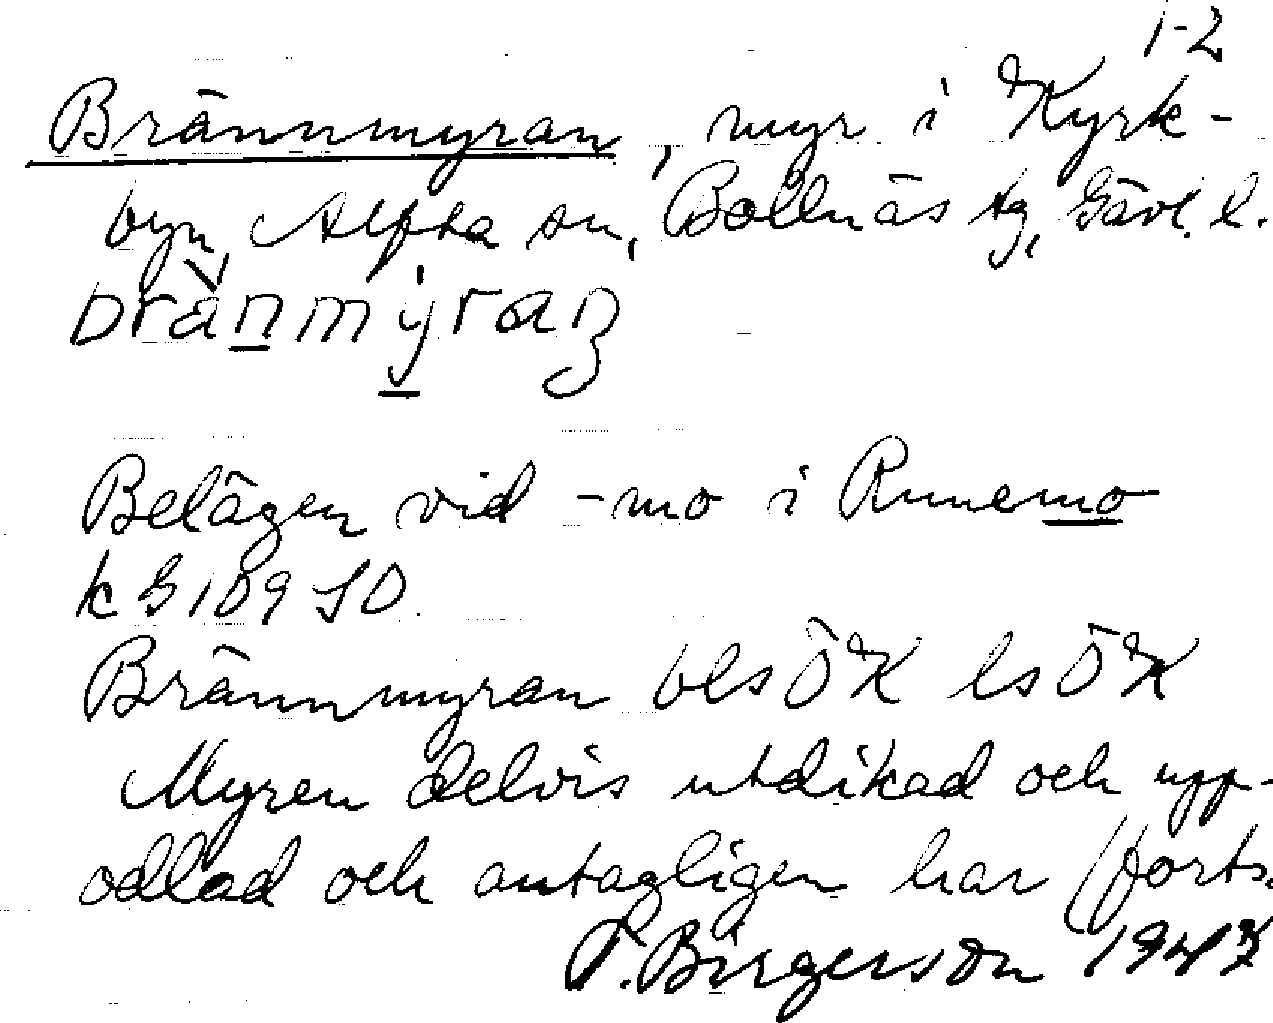 1-2
Brännmyran, myr i Kyrk-
byn, Alfta sn, Bollnäs tg, Gävl. l.
brä̀nmýran
Belägen vid -mo i Runemo
k G 109 SO
Brännmyran bls ÖK ls ÖK
Myren delvis utdikad och upp-
odlad och antagligen har (forts.
P. Birgerson 1947